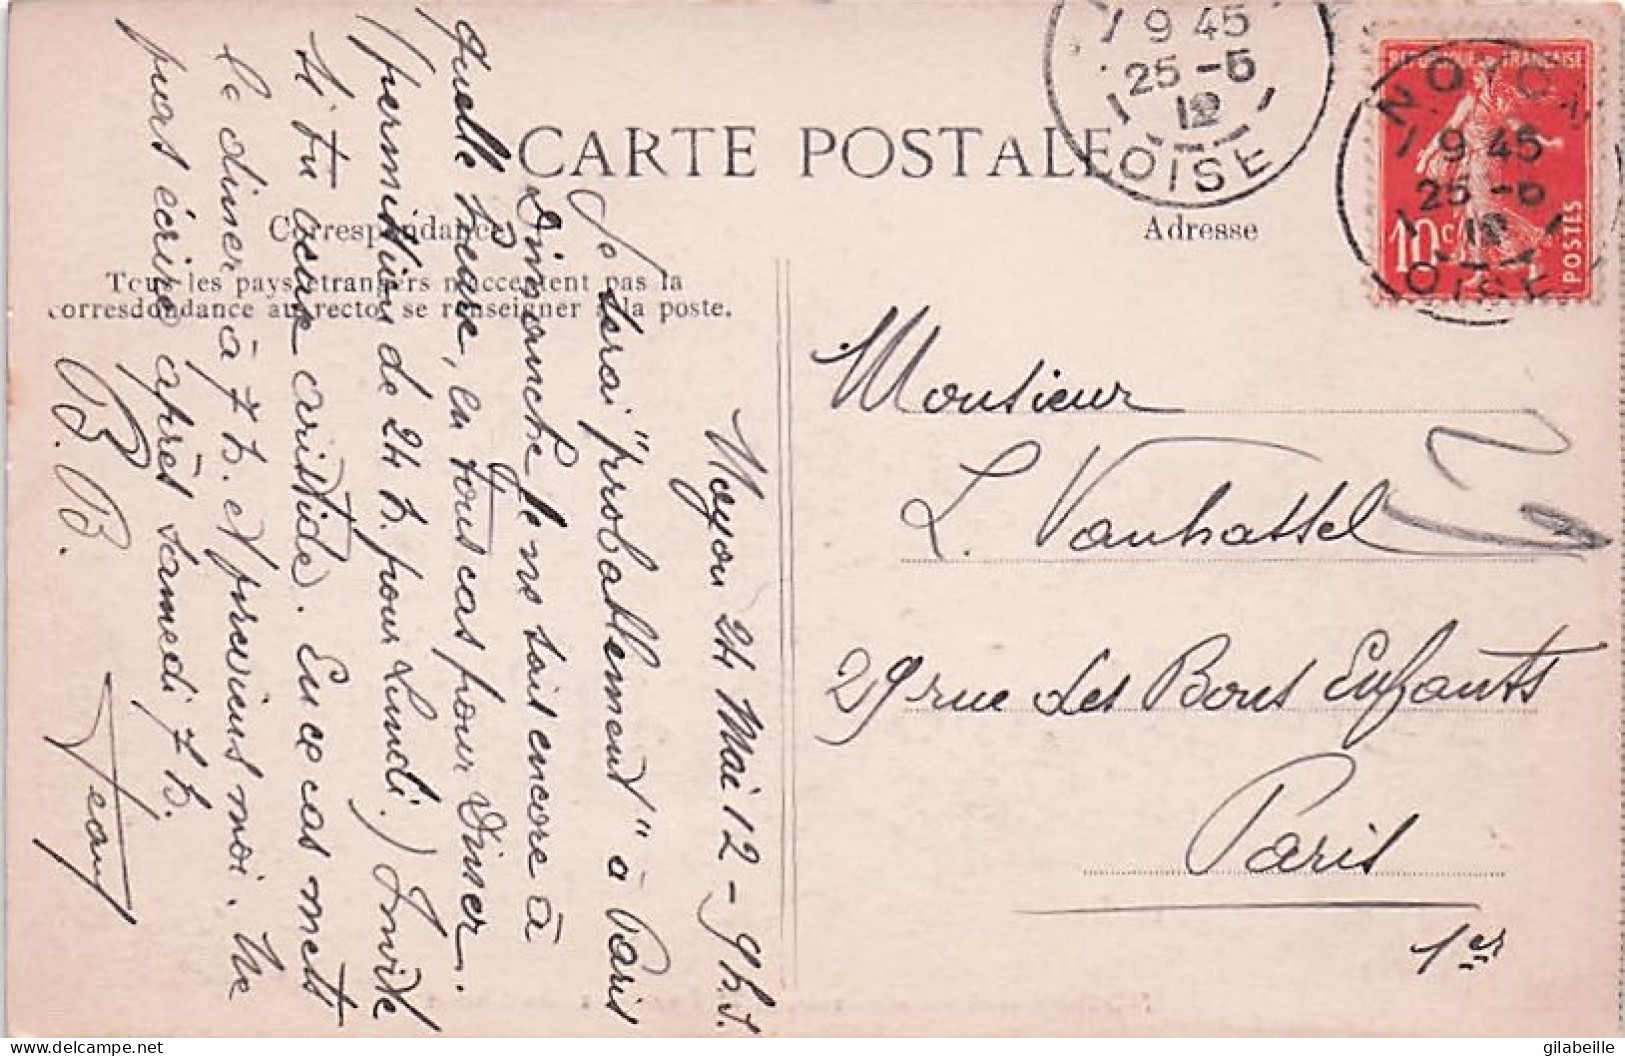 CARTE POSTALE
Correspondance
Adresse
Tous les pays étrangers n'acceptent pas la
correspondance au recto, se renseigner à la poste.
RÉPUBLIQUE FRANÇAISE
10c
POSTES
NOYON
9 45
25 -5
12
OISE
9 45
25 -5
12
OISE
Noyon 24 Mai 12 - 9 h. s.
Je serai "probablement" à Paris
Dimanche je ne sais encore à
quelle heure, en tous cas pour dîner.
(permission de 24 h. pour Lundi.) Invite
si tu veux Aristide. En ce cas mets
le dîner à 7 h. et préviens moi. Ne
pas écrire après samedi 7 h.
B. B.
Jean
Monsieur
L. Vanhassel
29 rue des Bons Enfants
Paris
1er
delcampe.net
gilabeille